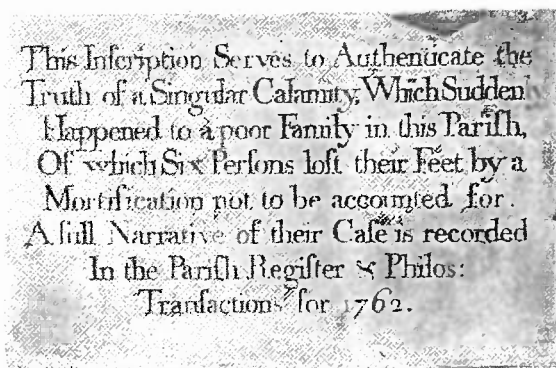 This Inſcription Serves to Authenticate the
Truth of a Singular Calamity, Which Suddenly
Happened to a poor Family in this Pariſh,
Of which Six Perſons loſt their Feet by a
Mortification not to be accounted for.
A full Narrative of their Caſe is recorded
In the Pariſh Regiſter & Philos:
Tranſactions for 1762.